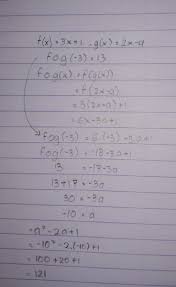 f(x) = 3x+1. g(x) = 2x-a
fog(-3) = 13
fog(x) = f(g(x))
= f(2x-a)
= 3(2x-a)+1
= 6x-3a+1
fog(-3) = 6.(-3)-3a+1
fog(-3) = -18-3a+1
13 = -17-3a
13+17 = -3a
30 = -3a
-10 = a
= a²-2a+1
= -10²-2.(-10)+1
= 100+20+1
= 121